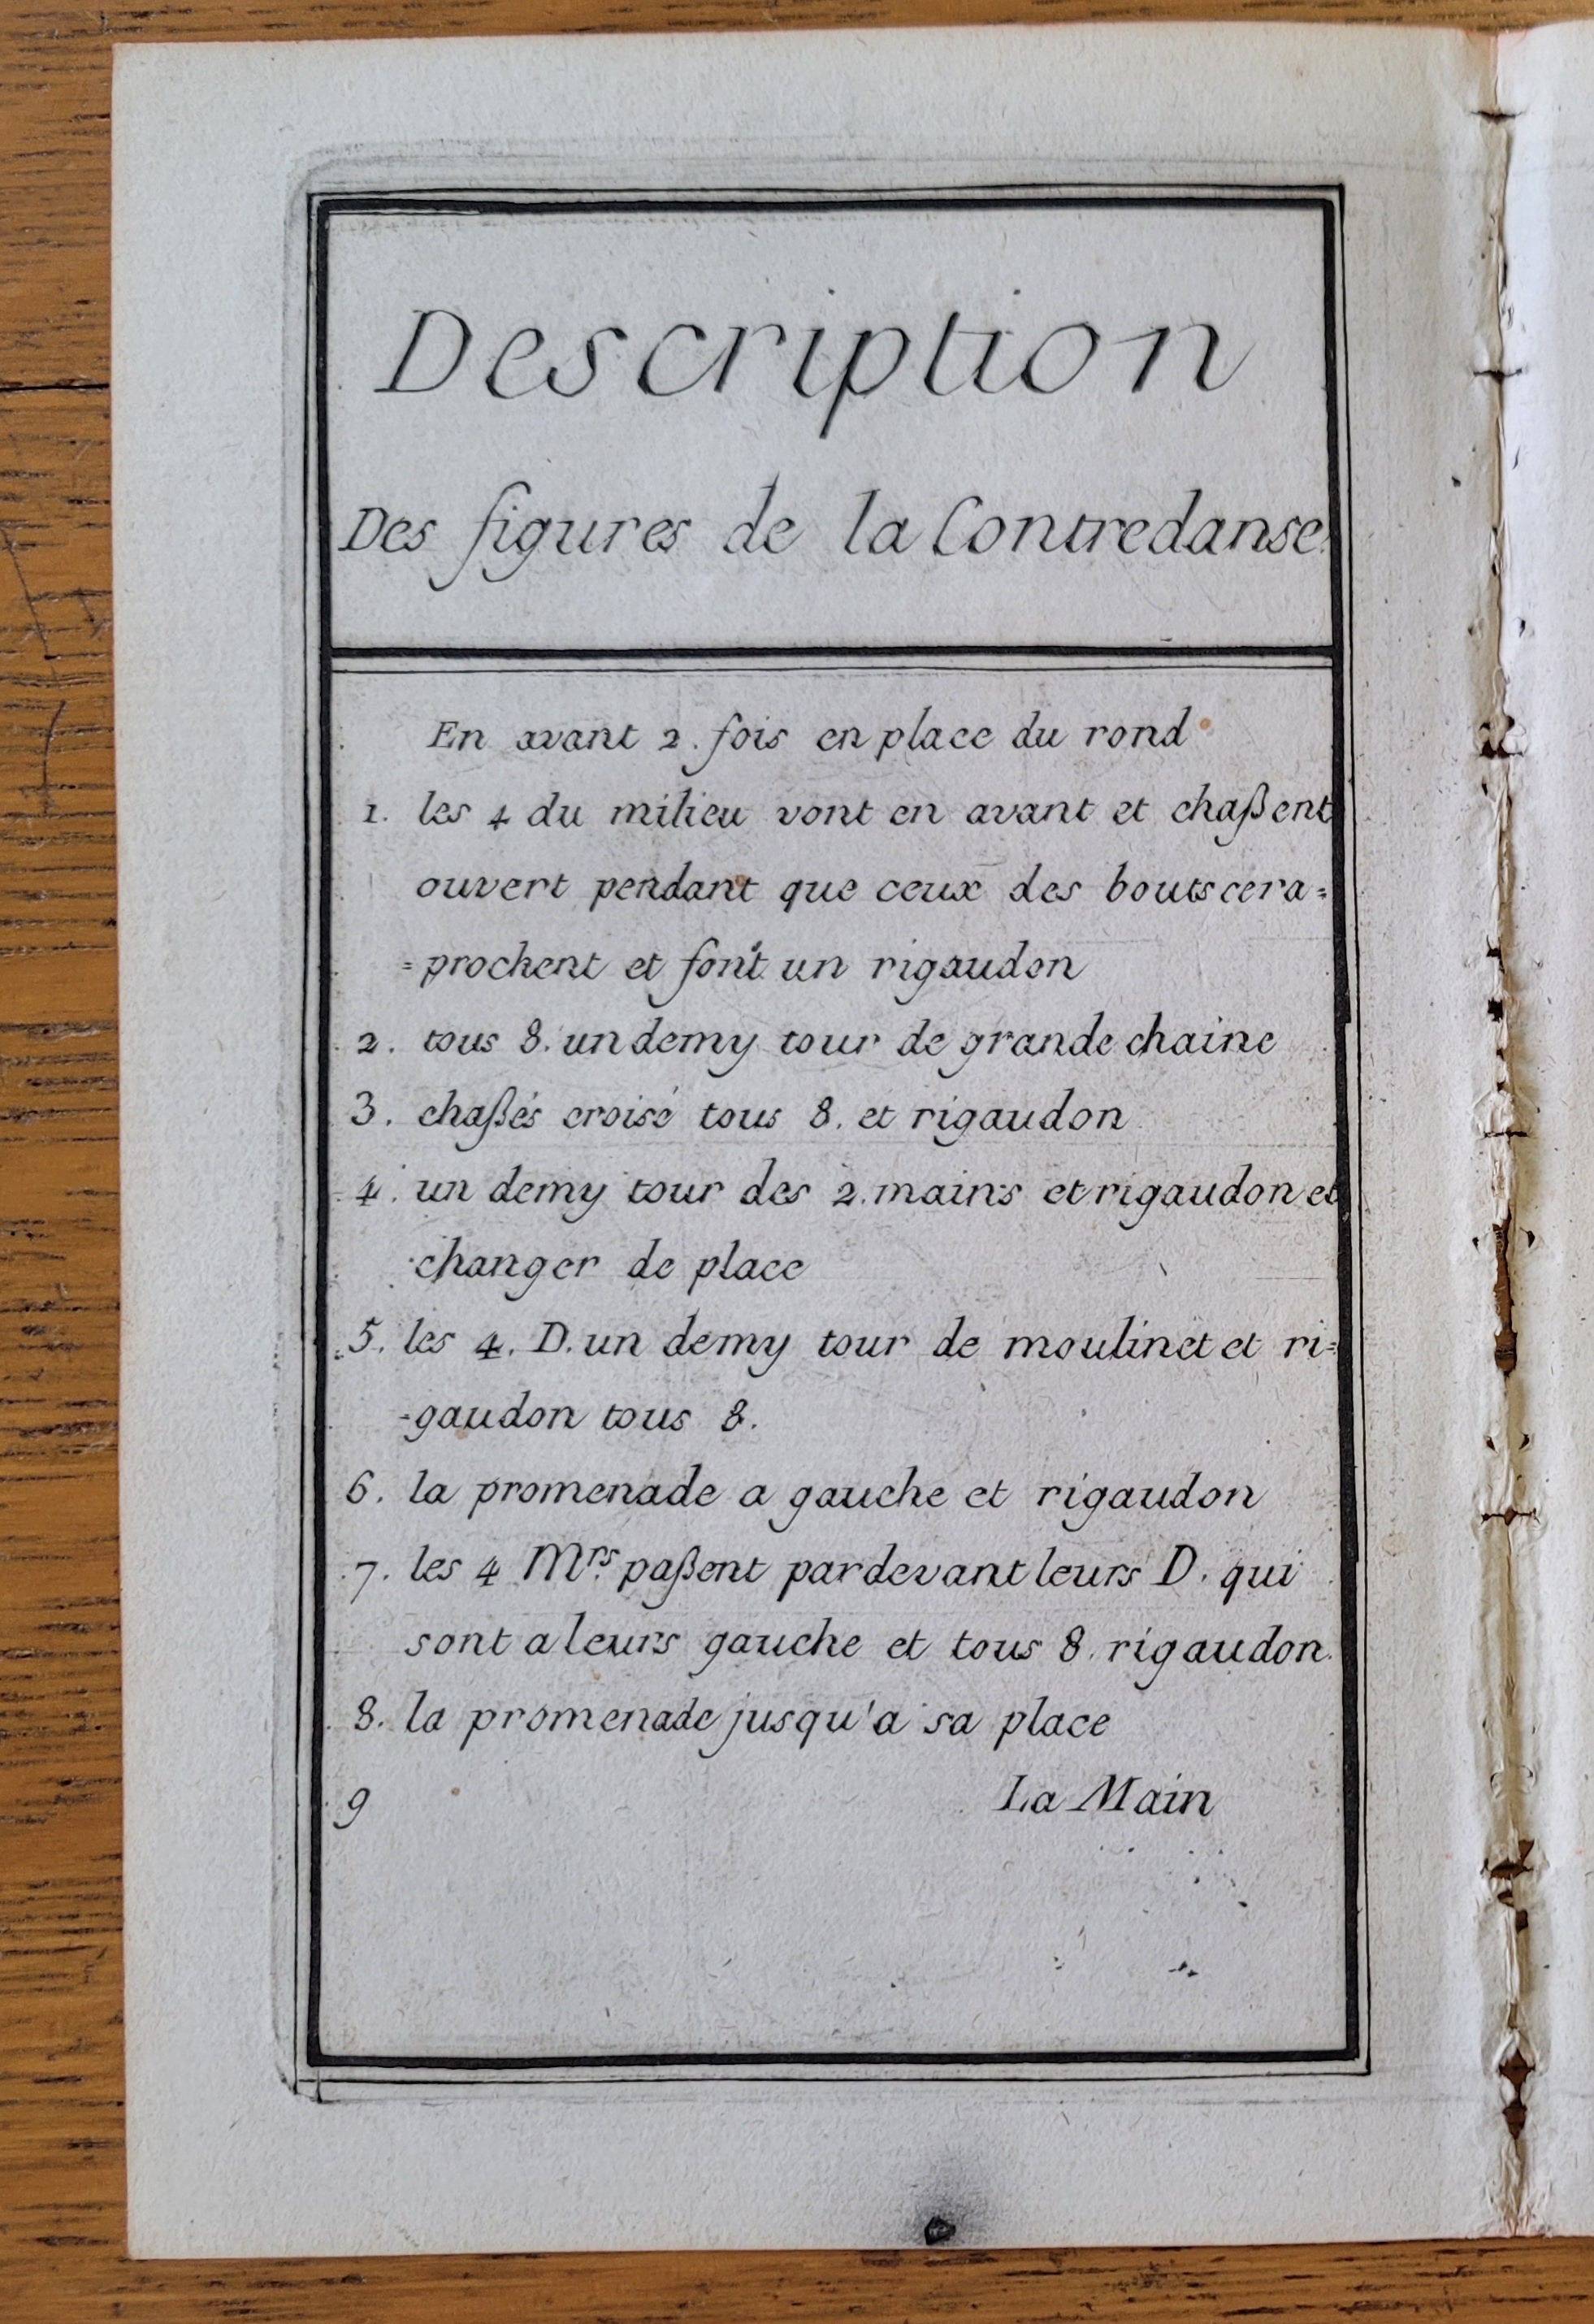 Description
Des figures de la Contredanse.
En avant 2. fois en place du rond
1. les 4 du milieu vont en avant et chaßent
ouvert pendant que ceux des bouts cera=
=prochent et font un rigaudon
2. tous 8. un demy tour de grande chaine
3. chaßés croisé tous 8. et rigaudon
4. un demy tour des 2. mains et rigaudon et
changer de place
5. les 4. D. un demy tour de moulinet et ri=
-gaudon tous 8.
6. la promenade a gauche et rigaudon
7. les 4 Mrs. paßent par devant leurs D. qui
sont a leurs gauche et tous 8. rigaudon.
8. la promenade jusqu'a sa place
9 La Main